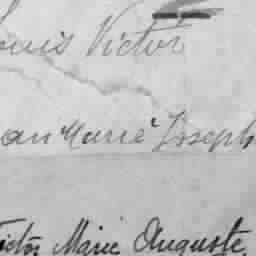 Louis Victor
Jean Marie Joseph
Victor Marie Auguste.